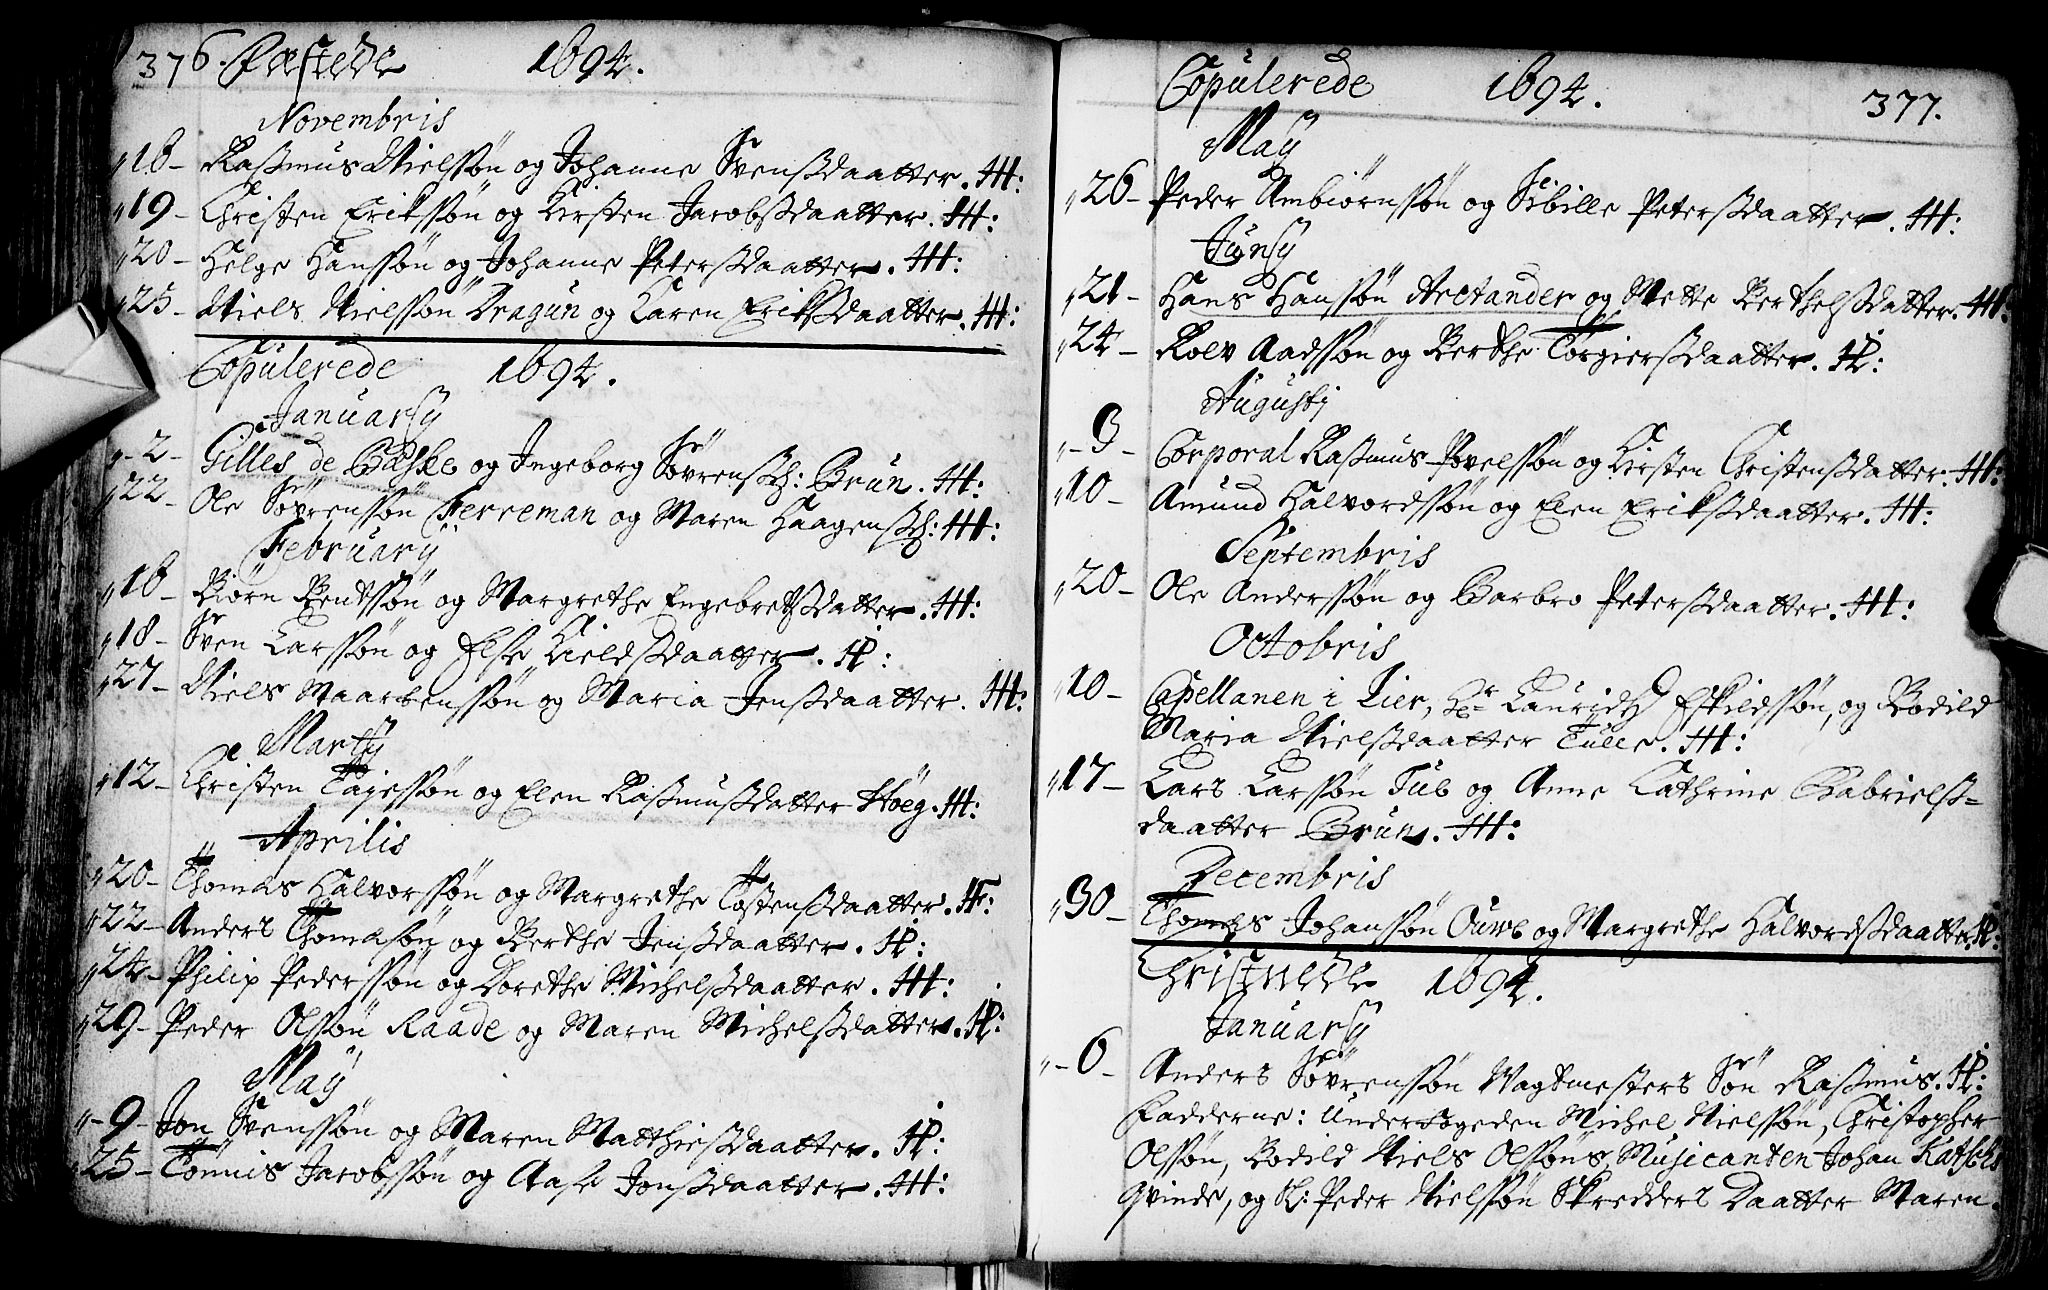 376. Fæstede 1694.
Novembris
18 - Rasmus Nielssøn og Johanne Svensdaatter. H:
19 - Christen Erikssøn og Kirsten Jacobsdaatter. H:
20 - Helge Hanssøn og Johanne Petersdaatter. H:
25 - Niels Nielssøn Dragun og Karen Eriksdaatter. H:
Copulerede 1694.
Januarij
2 - Gilles de og Ingeborg Søvrensd: Brun. H:
22 - Ole Søvrenssøn Ferreman og Maren Haagensd: H:
Februarij
16 - Biørn Bentssøn og Margrethe Engebretsdatter. H:
18 - Sven Larssøn og Else Kieldsdaatter. P:
27 - Niels Maartenssøn og Maria Jensdaatter. H:
Martij
12 - Christen Tajessøn og Elen Rasmusdatter Høeg. H:
Aprilis
20 - Thomas Halvorssøn og Margrethe Tostensdaatter. H:
22 - Anders Thomasøn og Berthe Jensdaatter. P:
24 - Philip Pederssøn og Dorethe Michelsdaatter. H:
29 - Peder Olssøn Raade og Maren Michelsdatter. P:
Maij
9 - Jon Svenssøn og Maren Matthiesdaatter. P:
25 - Tønnis Jacobssøn og Aase Jonsdaatter. H:
Copulerede 1694. 377.
Maij
26 - Peder Ambiørnssøn og Sibille Petersdaatter. H:
Junij
21 - Hans Hanssøn Arctander og Mette Berthelsdatter. H:
24 - Rolv Aadssøn og Berthe Torgiersdaatter. P:
Augusti
3 - Corporal Rasmus Povelssøn og Kirsten Christensdatter. H:
10 - Amund Halvordssøn og Elen Eriksdaatter. H:
Septembris
20 - Ole Anderssøn og Barbro Petersdaatter. H:
Octobris
10 - Capellanen i Lier, Hr Lauridtz Eskildssøn, og Bodild
Maria Nielsdaatter Tulle. H:
17 - Lars Larssøn Tub og Anne Cathrine Gabriels-
daatter Brun. H:
Decembris
30 - Thomas Johanssøn Ouwe og Margrethe Halvordsdaatter P:
Christnede 1694.
Januarij
6 - Anders Søvrenssøn Vagtmesters Søn Rasmus. P:
Fadderne: Underfogeden Michel Nielssøn, Christopher
Olssøn, Bodild Niels Olssøns, Musicanten Johan
Qvinde, og Sl: Peder Nielssøn Skredders Daatter Maren.